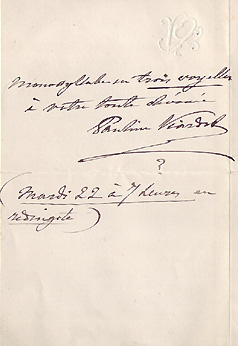 Monosyllabe en trois voyelles
à votre toute dévouée
Pauline Viardot
?
(Mardi 22 à 7 heures en
redingote)